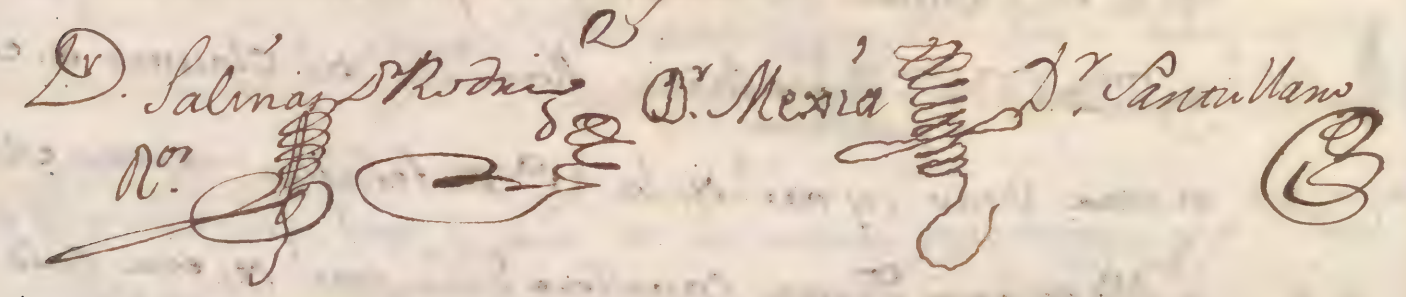 Dr. Salinas Dr Rodrig Dr. Mexía Dr. Santullano
Ror.